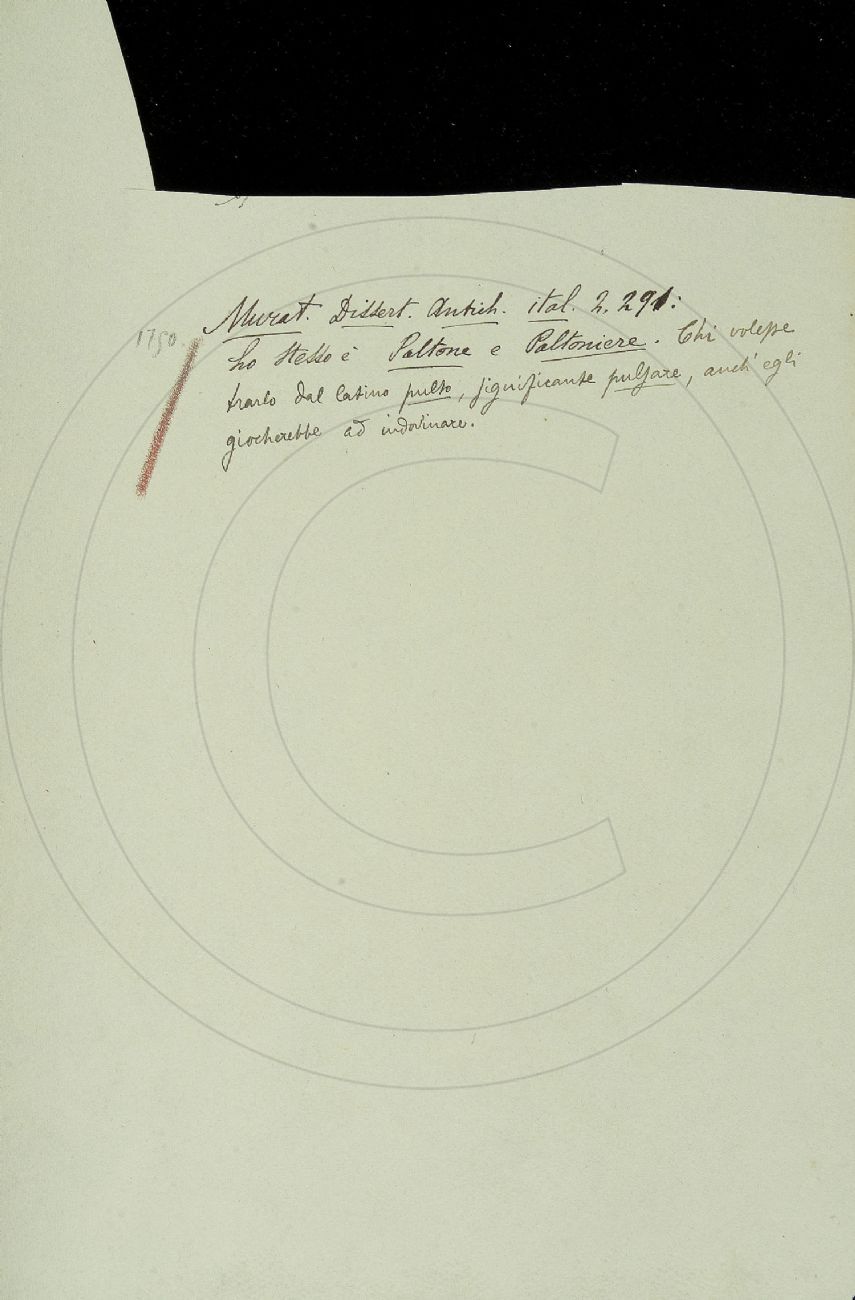 1750. Murat. Dissert. Antich. ital. 2. 291:
Lo stesso è Paltone e Paltoniere. Chi volesse
trarlo dal latino pulto, significante pulsare, anch' egli
giocherebbe ad indovinare.